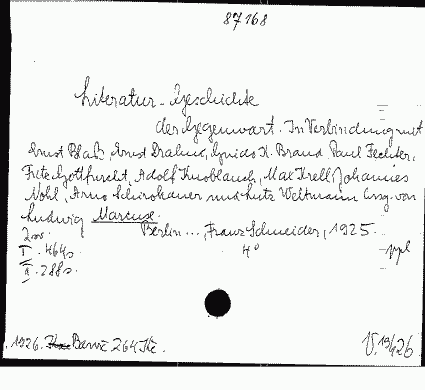 87168
Literatur-Geschichte
der Gegenwart. In Verbindung mit
Ernst Blaß, Ernst Drahn, Guido K. Brand, Paul Fechter,
Fritz Gottfurcht, Adolf Knoblauch, Max Krell, Johannes
Nohl, Arno Schirokauer und Lutz Weltmann hrsg. von
Ludwig Marcuse.
Berlin..., Franz Schneider, 1925.
I. 464 s. 4°
II. 288 s.
1926. 264